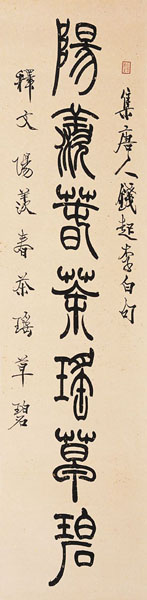 集唐人錢起李白句
陽羨春茶瑤草碧
釋文陽羨春茶瑤草碧